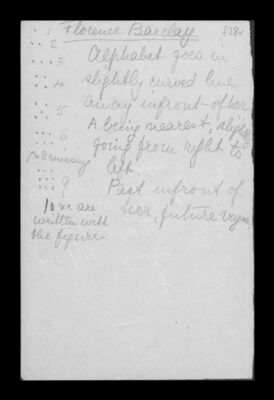 1 Florence Barclay f28v
2
3 Alphabet goes in
4 slightly curved line
5 away infront of her
6 A being nearest, slightly
going from right to
7 & 8 missing left
9 Past infront of
her, future vague
10 &c are
written with
the figures